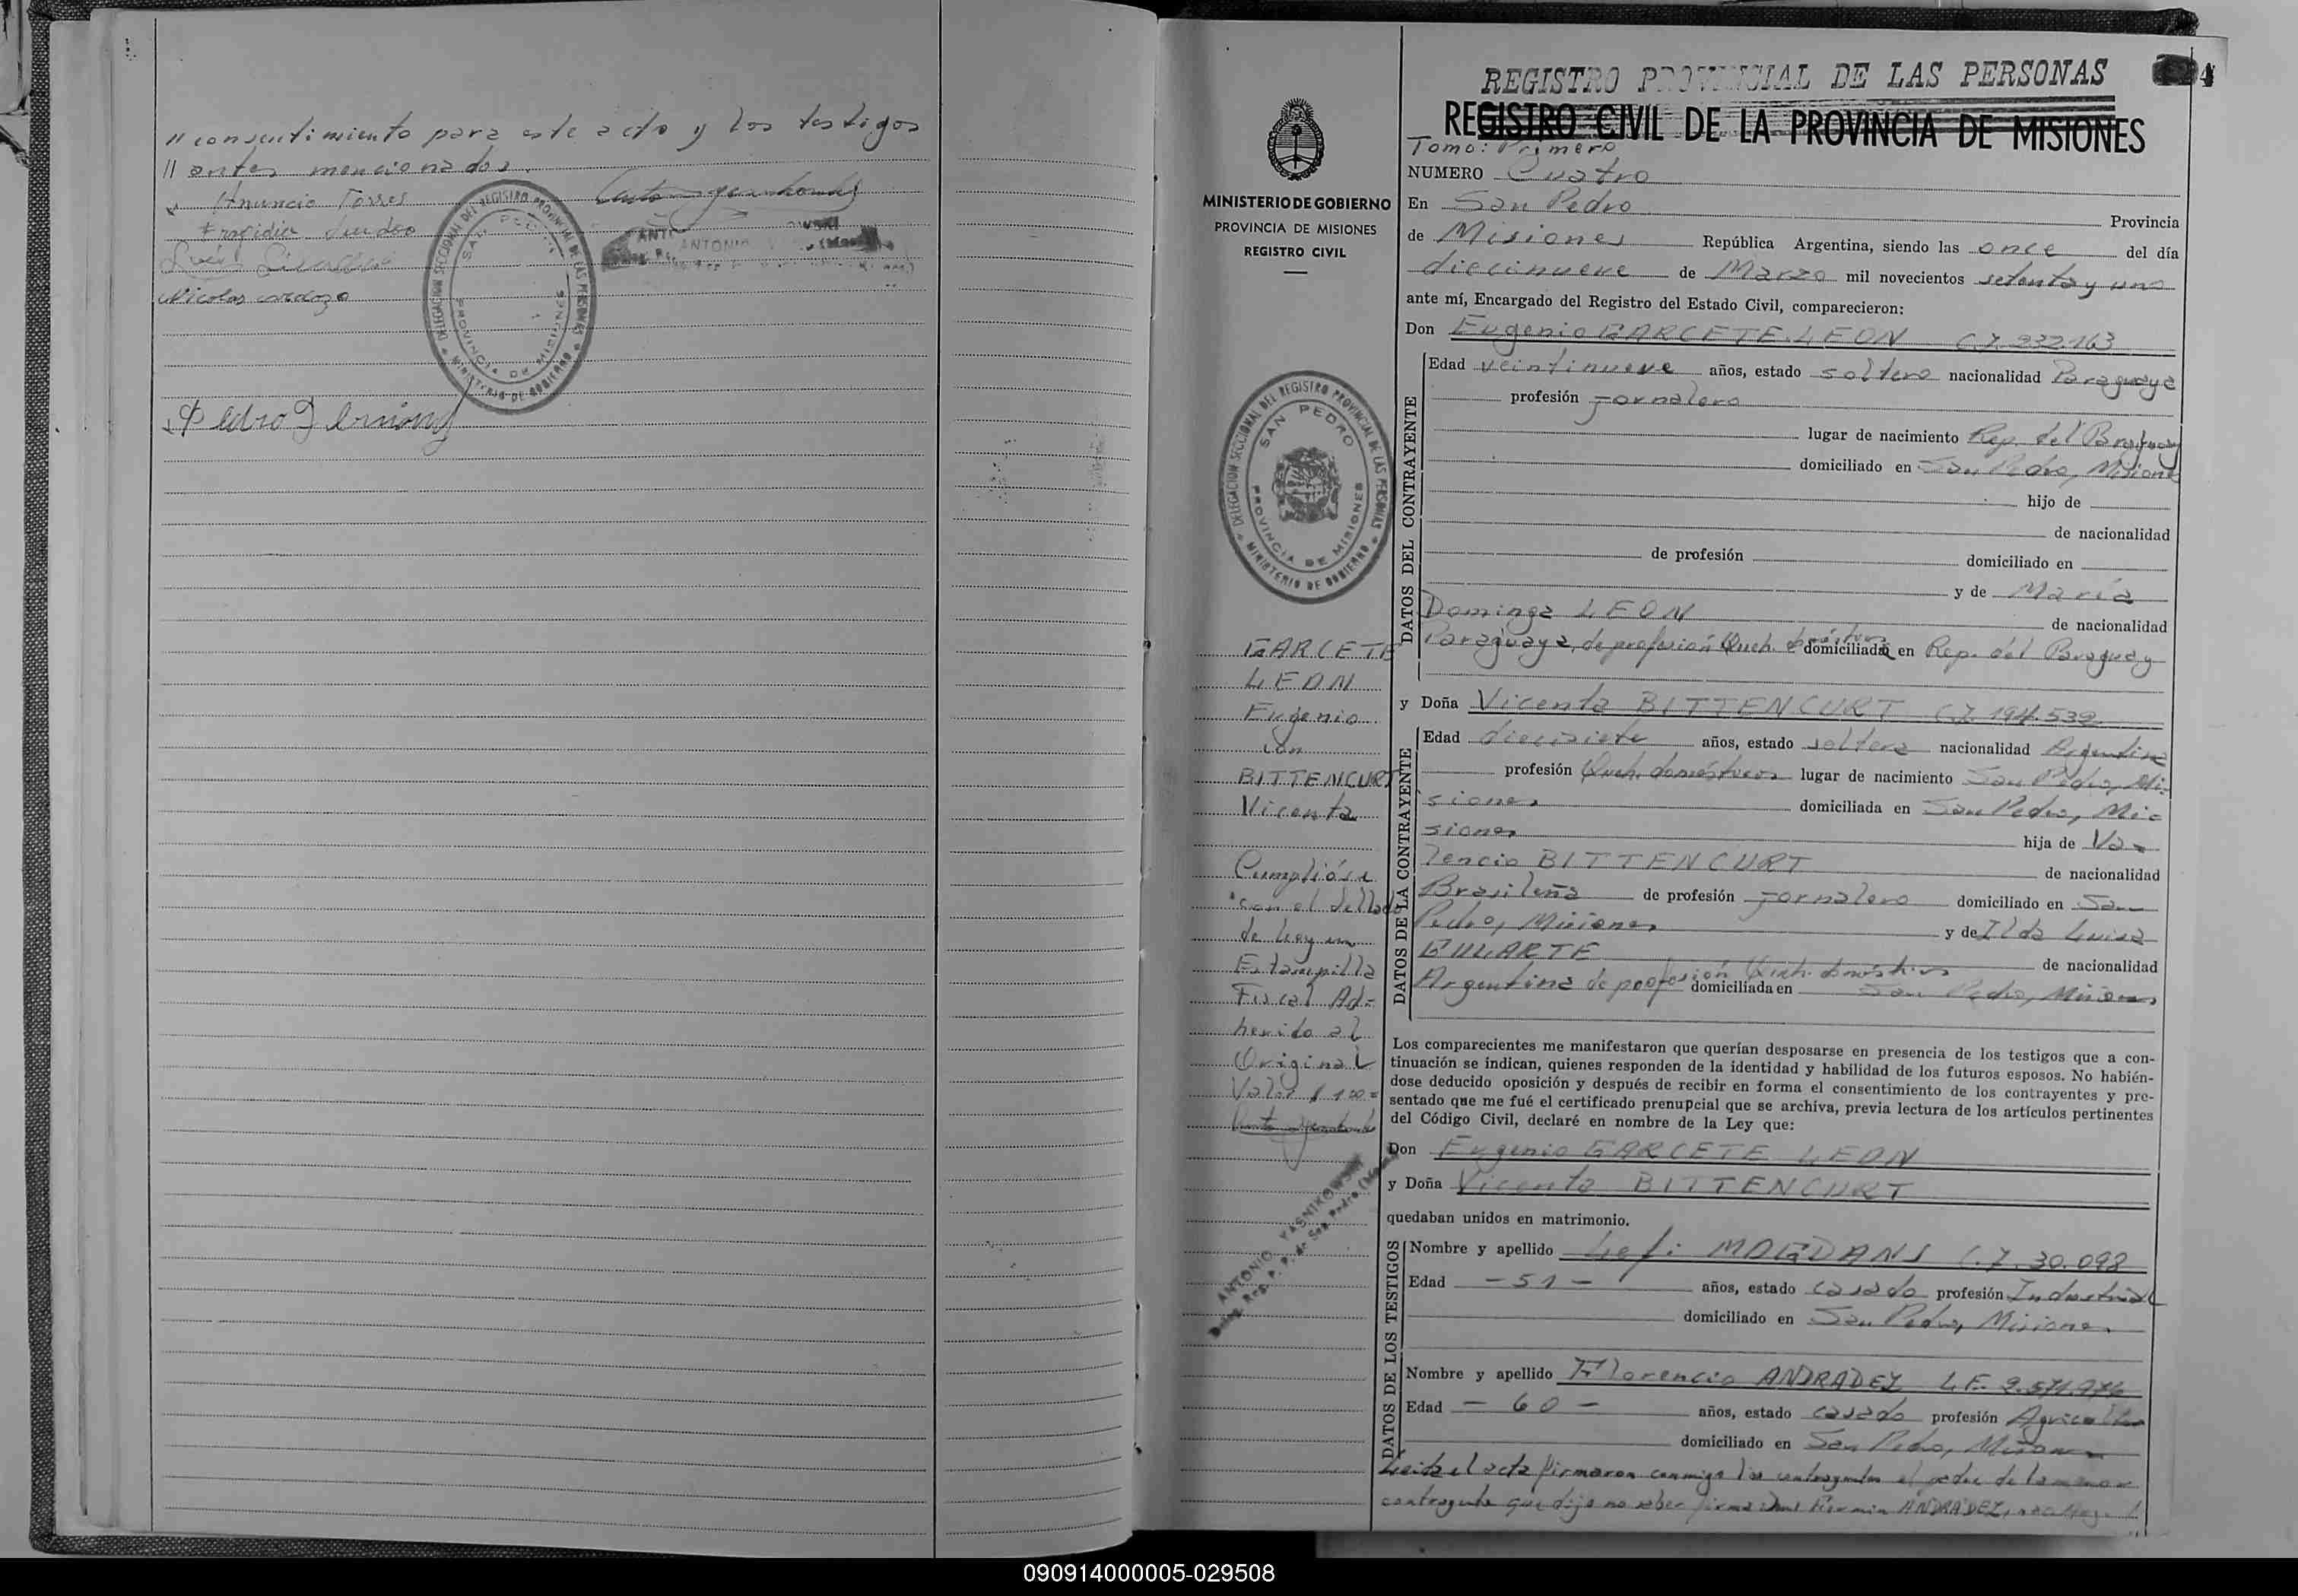 " consentimiento para este acto y los testigos
" antes mencionados.
Anuncio Torres
Nicolas cardozo
DELEGACION SECCIONAL DEL REGISTRO PROVINCIAL DE LAS PERSONAS
SAN PEDRO
PROVINCIA DE MISIONES
MINISTERIO DE GOBIERNO
ANTONIO
Pedro
MINISTERIO DE GOBIERNO
PROVINCIA DE MISIONES
REGISTRO CIVIL
DELEGACION SECCIONAL DEL REGISTRO PROVINCIAL DE LAS PERSONAS
SAN PEDRO
PROVINCIA DE MISIONES
MINISTERIO DE GOBIERNO
GARCETE
LEON
Eugenio
con
BITTENCURT
Vicenta
Cumplióse
con el sellado
de Ley en
Estampilla
Fiscal Ad-
herido al
Original
Valor $ 100=
ANTONIO YASNIKOWSKI
Deleg. Reg. P. P. de San Pedro (Mnes.)
REGISTRO PROVINCIAL DE LAS PERSONAS
4
REGISTRO CIVIL DE LA PROVINCIA DE MISIONES
Tomo: Primero
NUMERO Cuatro
En San Pedro Provincia
de Misiones República Argentina, siendo las once del día
diecinueve de Marzo mil novecientos setenta y uno
ante mí, Encargado del Registro del Estado Civil, comparecieron:
Don Eugenio GARCETE LEON C.I. 232.163
DATOS DEL CONTRAYENTE
Edad veintinueve años, estado soltero nacionalidad Paraguaya
profesión Jornalero
lugar de nacimiento Rep. del Paraguay
domiciliado en San Pedro, Misiones
hijo de
de nacionalidad
de profesión domiciliado en
y de María
Dominga LEON de nacionalidad
Paraguaya, de profesión Queh. domésticos domiciliada en Rep. del Paraguay
y Doña Vicenta BITTENCURT C.I. 194.539
DATOS DE LA CONTRAYENTE
Edad diecisiete años, estado soltera nacionalidad Argentina
profesión Queh. domésticos lugar de nacimiento San Pedro, Mi-
siones domiciliada en San Pedro, Mi-
siones hija de Va-
lencio BITTENCURT de nacionalidad
Brasileña de profesión Jornalero domiciliado en San
Pedro, Misiones y de Ilda Luisa
DUARTE de nacionalidad
Argentina de profesión Queh. domésticos domiciliada en San Pedro, Misiones
Los comparecientes me manifestaron que querían desposarse en presencia de los testigos que a con-
tinuación se indican, quienes responden de la identidad y habilidad de los futuros esposos. No habién-
dose deducido oposición y después de recibir en forma el consentimiento de los contrayentes y pre-
sentado que me fué el certificado prenupcial que se archiva, previa lectura de los artículos pertinentes
del Código Civil, declaré en nombre de la Ley que:
Don Eugenio GARCETE LEON
y Doña Vicenta BITTENCURT
quedaban unidos en matrimonio.
DATOS DE LOS TESTIGOS
Nombre y apellido MAGDANS C.I. 30.098
Edad - 51 - años, estado casado profesión Industrial
domiciliado en San Pedro, Misiones
Nombre y apellido Florencio ANDRADEZ L.E.
Edad - 60 - años, estado casado profesión Agricultor
domiciliado en San Pedro, Misiones
Leida el acta firmaron conmigo los contrayentes el padre de la menor
contrayente que dijo no saber firmar Fermin ANDRADEZ,
090914000005-029508